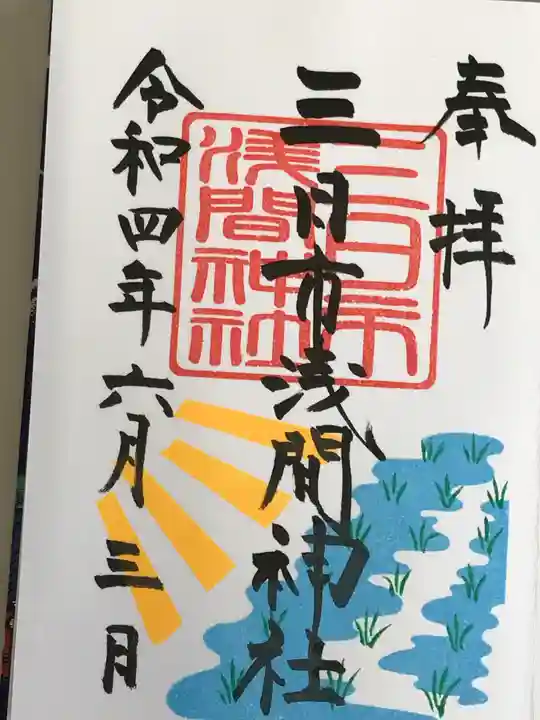 奉拝
三日市浅間神社
三日市
浅間神社
令和四年六月三日